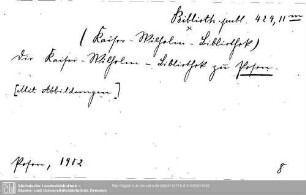 Biblioth. publ. 429,11
(Kaiser-Wilhelm-Bibliothek)
Die Kaiser-Wilhelm-Bibliothek zu Posen.
[Mit Abbildungen]
Posen, 1902
8
Sächsische Landesbibliothek -
Staats- und Universitätsbibliothek Dresden